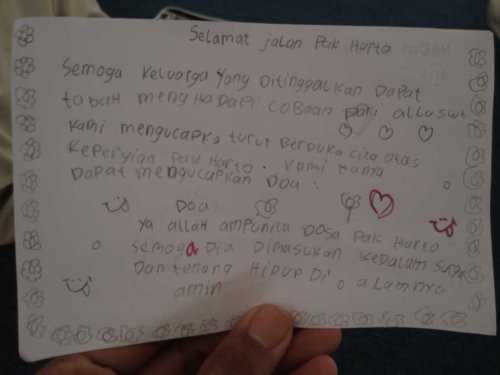 Selamat jalan Pak Harto
Semoga Keluarga Yang Ditinggalkan Dapat
tabah mengHadapi cobaan Dari allu swt
Kami mengucapka turut Berduka cita atas
Kepergian Pak Harto . Kami Hanya
Dapat mengucapkan Doa :
Doa
Ya allah ampunila Dosa Pak Harto
Semoga Dia Dimasukan Kedalam Surga
Dan tenang Hidup Di alamnya
amin